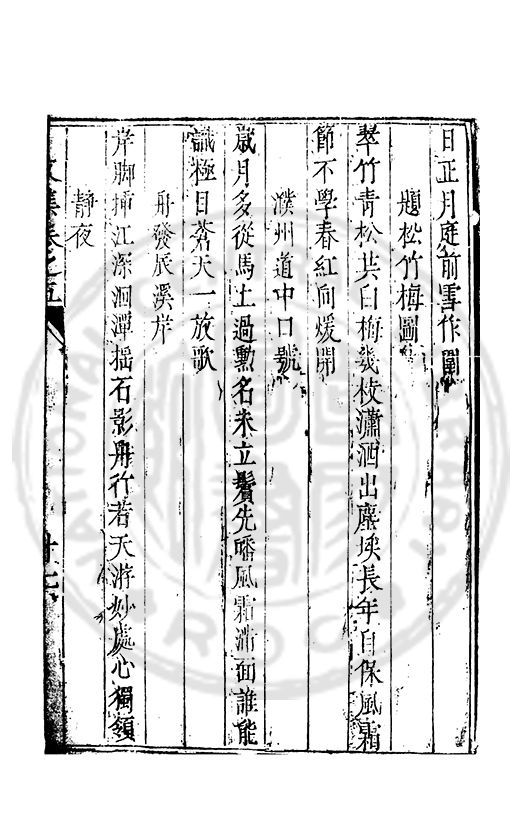 日正月庭前雪作團
題松竹梅圖
翠竹青松共白梅幾枝瀟洒出塵埃長年自保風霜
節不學春紅向煖開
濮州道中口號
歲月多從馬上過勲名未立鬢先皤風霜滿面誰能
識極目蒼天一放歌
舟發辰溪岸
岸脚插江深洄潭揺石影舟行若天游妙處心獨領
靜夜
文集卷之五
十七